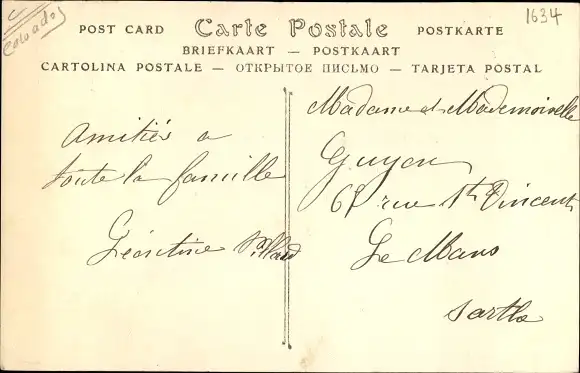 Calvados
1634
POST CARD Carte Postale POSTKARTE
BRIEFKAART — POSTKAART
CARTOLINA POSTALE — ОТКРЫТОЕ ПИСЬМО — TARJETA POSTAL
Amitiés a
toute la famille
Léontine
Madame et Mademoiselle
Guyon
rue St Vincent
Le Mans
Sarthe